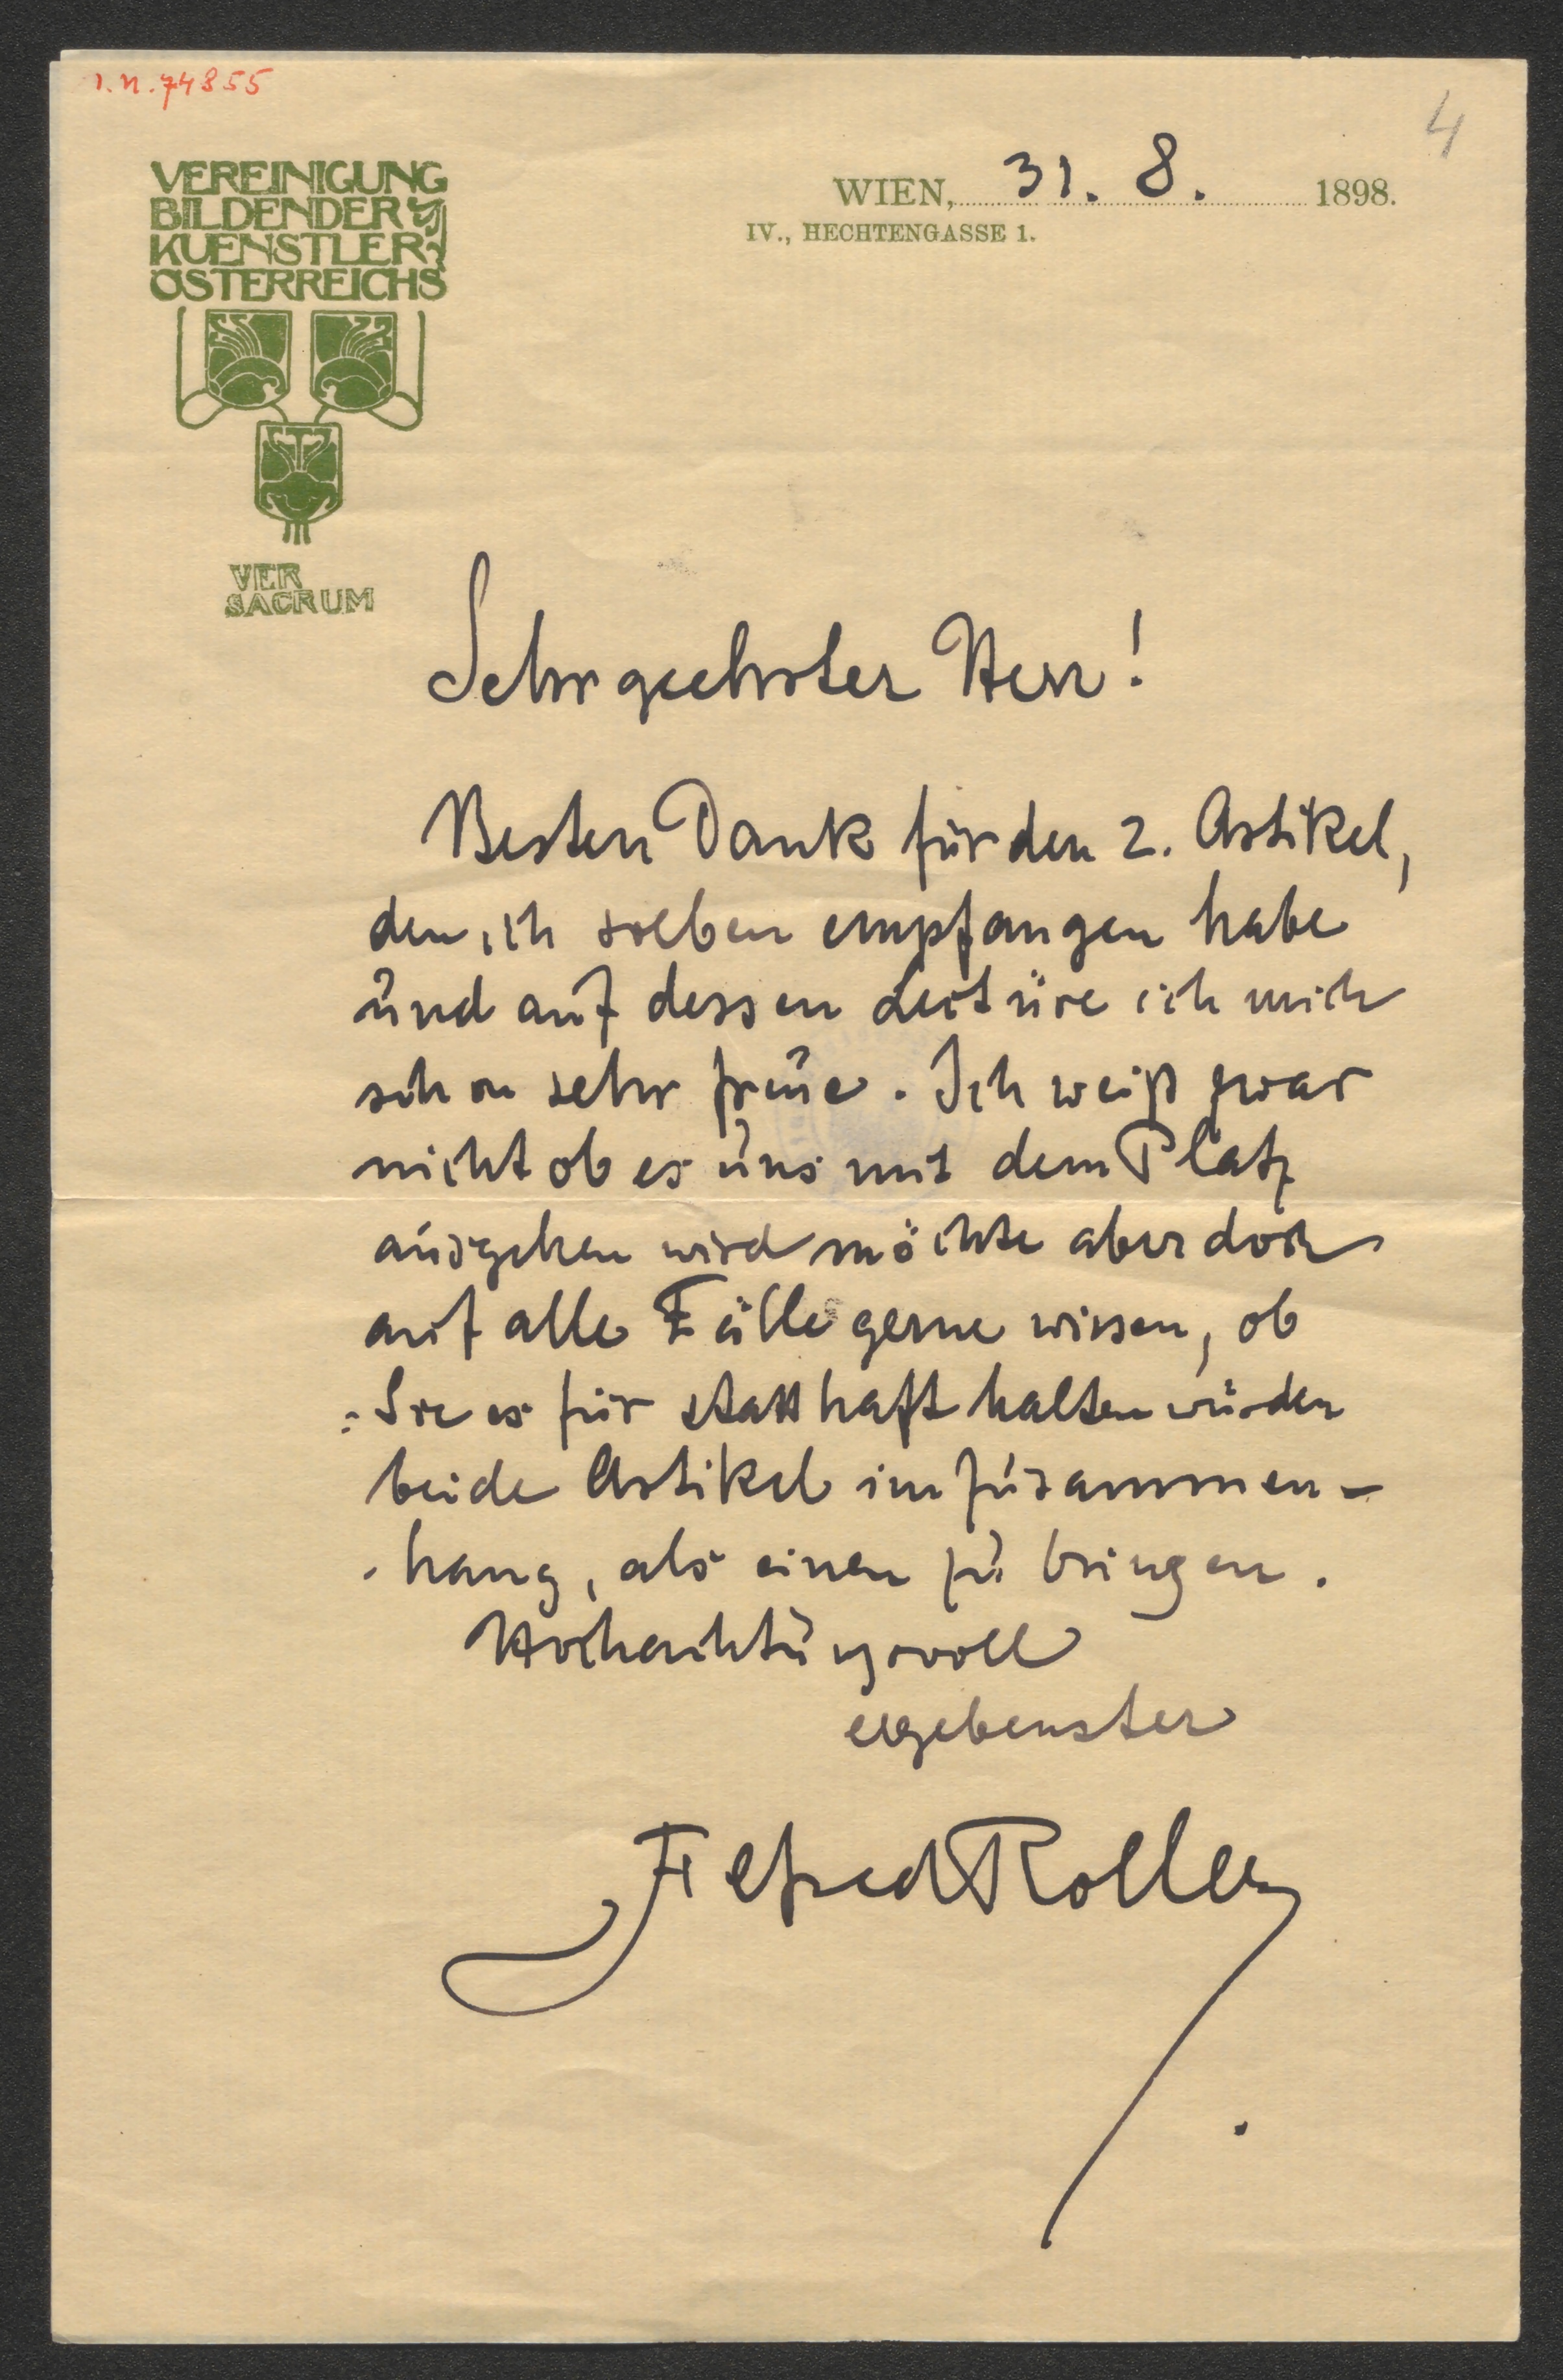 I.N. 74855
4
VEREINIGUNG
BILDENDER
KUENSTLER
ÖSTERREICHS
VER
SACRUM
WIEN, 31. 8. 1898.
IV., HECHTENGASSE 1.
Sehr geehrter Herr!
Besten Dank für den 2. Artikel,
den ich soeben empfangen habe
und auf dessen Lectüre ich mich
schon sehr freue. Ich weiß zwar
nicht ob es uns mit dem Platz
ausgehen wird möchte aber doch
auf alle Fälle gerne wissen, ob
Sie es für statthaft halten würden
beide Artikel im Zusammen-
hang, als einen zu bringen.
Hochachtungsvoll
ergebenster
Alfred Roller